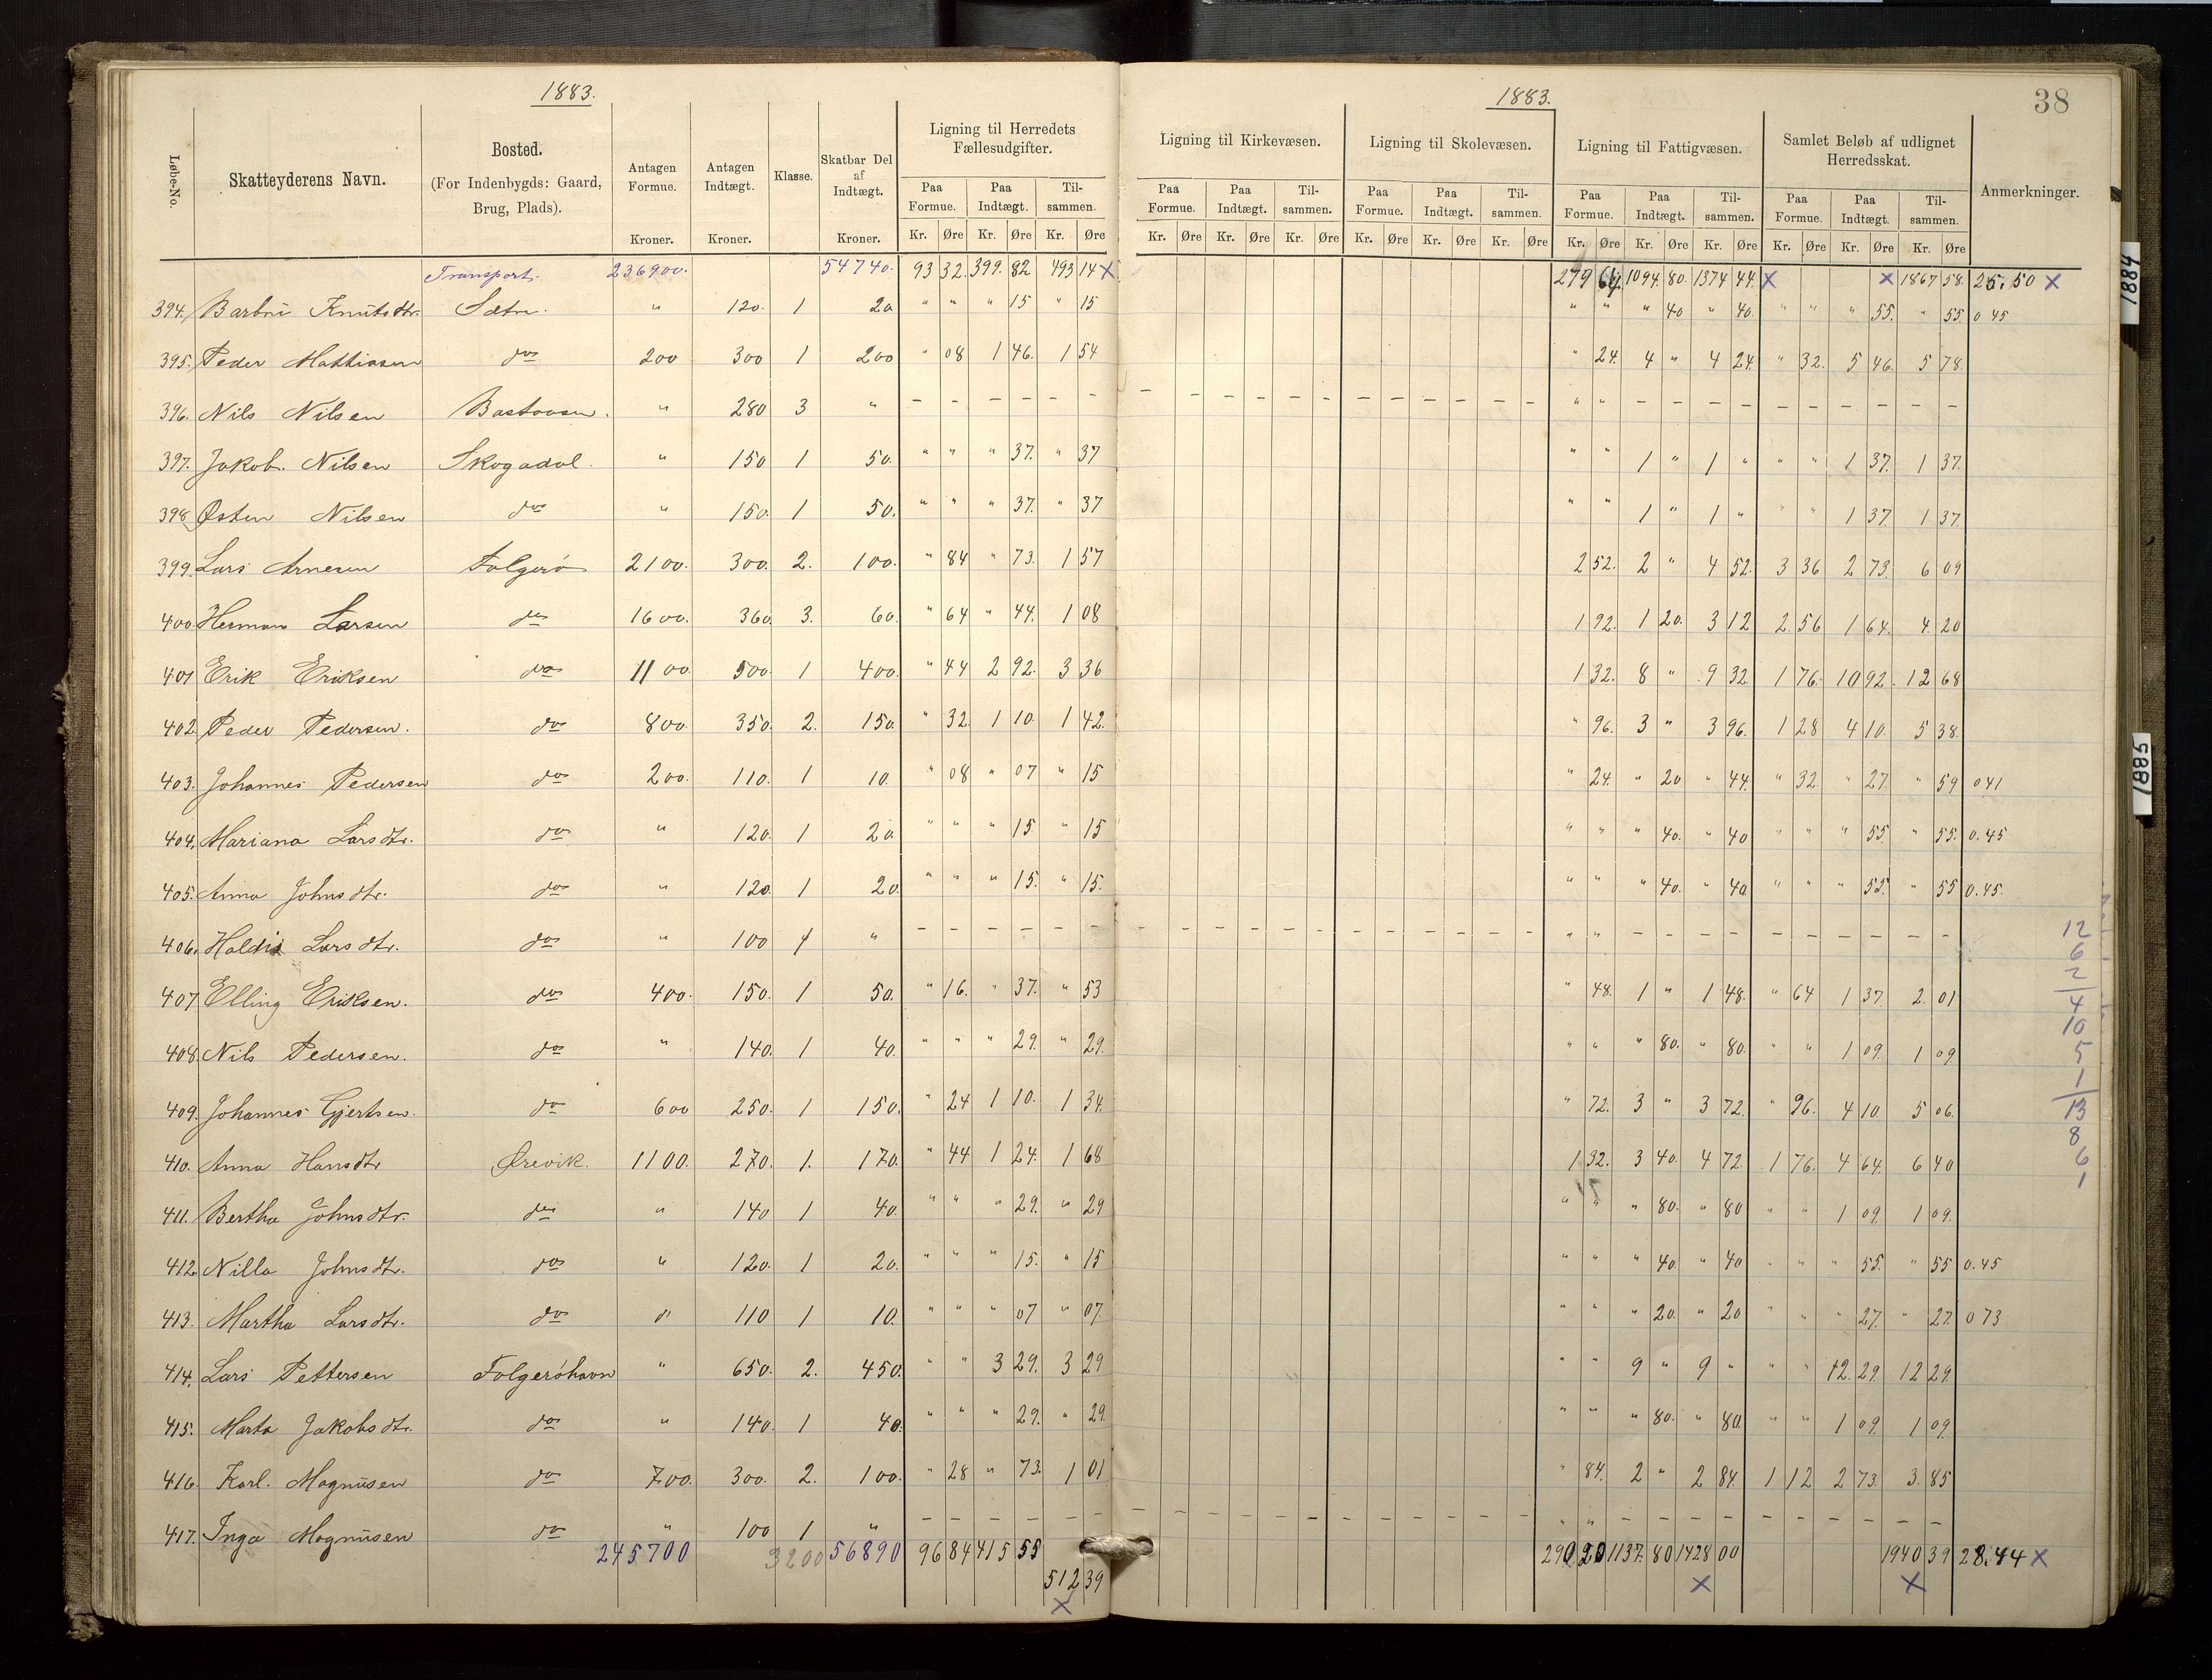 1883.
1883.
38
Løbe-No.
Skatteyderens Navn.
Bosted. (For Indenbygds: Gaard, Brug, Plads).
Antagen Formue. Kroner.
Antagen Indtægt. Kroner.
Klasse.
Skatbar Del af Indtægt. Kroner.
Ligning til Herredets Fællesudgifter.
Ligning til Kirkevæsen.
Ligning til Skolevæsen.
Ligning til Fattigvæsen.
Samlet Beløb af udlignet Herredsskat.
Anmerkninger.
Paa Formue. Paa Indtægt. Tilsammen. Paa Formue. Paa Indtægt. Tilsammen. Paa Formue. Paa Indtægt. Tilsammen. Paa Formue. Paa Indtægt. Tilsammen. Paa Formue. Paa Indtægt. Tilsammen.
Kr. Øre Kr. Øre Kr. Øre Kr. Øre Kr. Øre Kr. Øre Kr. Øre Kr. Øre Kr. Øre Kr. Øre Kr. Øre Kr. Øre Kr. Øre Kr. Øre Kr. Øre
Transport. 236900. 54740. 93 32. 399. 82 493 14 x 279 64. 1094. 80. 1374 44. x x 1867 58. 25.50 x
394. Barbri Knutsdtr. Sætre. " 120. 1 20 " " " 15 " 15 " " " 40 " 40. " " " 55. " 55. 0 45
395. Peder Mattiasen do 200 300 1 200 " 08 1 46. 1 54 " 24. 4 " 4 24. " 32. 5 46. 5 78.
396. Nils Nilsen " 280 3 " - - - - - - " " - - - - - - - - - -
397. Jakob. Nilsen Skogadal. " 150 1 50. " " " 37. " 37 " " 1 " 1 " " " 1 37. 1 37.
398 Østen Nilsen do " 150. 1 50. " " " 37. " 37 " " 1 " 1 " " " 1 37 1 37.
399. Lars Arnesen Folgerø 2100. 300. 2. 100. " 84 " 73. 1 57 2 52. 2 " 4 52. 3 36 2 73. 6 09
400. Herman Larsen do 1600. 360. 3. 60. " 64 " 44. 1 08 1 92. 1 20. 3 12 2 56 1 64. 4. 20
401 Erik Eriksen do 1100. 500. 1 400. " 44 2 92. 3 36 1 32. 8 " 9 32 1 76. 10 92. 12 68
402. Peder Pedersen. do 800. 350. 2. 150. " 32. 1 10. 1 42. " 96. 3 " 3 96. 1 28 4 10. 5 38.
403. Johannes Pedersen do 200. 110. 1 10. " 08 " 07 " 15 " 24. " 20 " 44. " 32. " 27. " 59 0 41
404. Mariana Larsdtr. do " 120. 1 20. " " " 15 " 15 " " " 40. " 40 " " " 55 " 55. 0.45
405. Anna Johnsdtr. do " 120. 1 20. " " " 15. " 15. " " " 40. " 40 " " " 55. " 55 0.45.
406. Larsdtr. do " 100 4 " - - - - - - " " - - - - - - - - - -
407 Elling Eriksen. do 400. 150. 1 50. " 16. " 37. " 53 " 48. 1 " 1 48. " 64 1 37. 2. 01
408. Nils Pedersen. do " 140. 1 40. " " " 29. " 29. " " " 80. " 80. " " 1 09. 1 09.
409. Johannes Gjertsen. do 600 250. 1 150. " 24 1 10. 1 34. " 72. 3 " 3 72. " 96. 4 10. 5 06.
410. Anna Hansdtr Ørevik. 1100. 270. 1. 170. " 44 1 24. 1 68 1 32. 3 40. 4 72. 1 76. 4 64. 6 40
411. Bertha Johnsdtr. do " 140 1 40. " " " 29. " 29 " " " 80. " 80 " " 1 09. 1 09.
412. Nilla Johnsdtr. do " 120. 1 20. " " " 15. " 15 " " " 40. " 40 " " " 55. " 55 0.45
413. Martha Larsdtr. do " 110 1 10. " " " 07 " 07. " " " 20. " 20 " " " 27. " 27. 0 73
414. Lars Pettersen Folgerøhavn " 650. 2. 450. " " 3 29. 3 29 " " 9 " 9 " " " 12. 29 12 29.
415. Marta Jakobsdtr. do " 140. 1 40. " " " 29. " 29. " " " 80. " 80. " " 1 09. 1 09.
416. Karl. Magnusen do 700. 300. 2. 100. " 28 " 73. 1 01 " 84. 2 " 2 84. 1 12 2 73. 3. 85
417. Inga Magnusen do " 100 1 " - - - - - - " " - - - - - - - - - -
245700 3200 56890 96 84 415 55 290 20 1137. 80 1428 00 1940 39 28.44 x
512 39
x x x
12
6
2
4
10
5
1
13
8
6
1
1884
1885